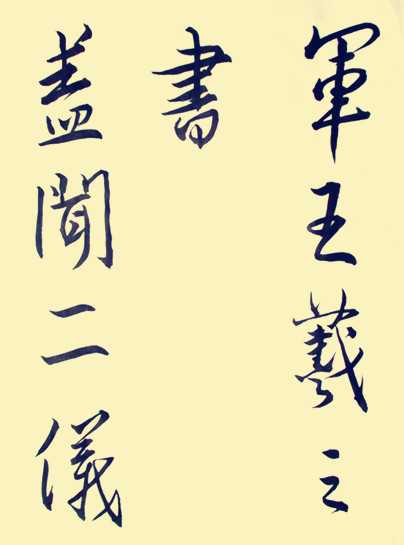 軍王羲之
書
盖聞二儀